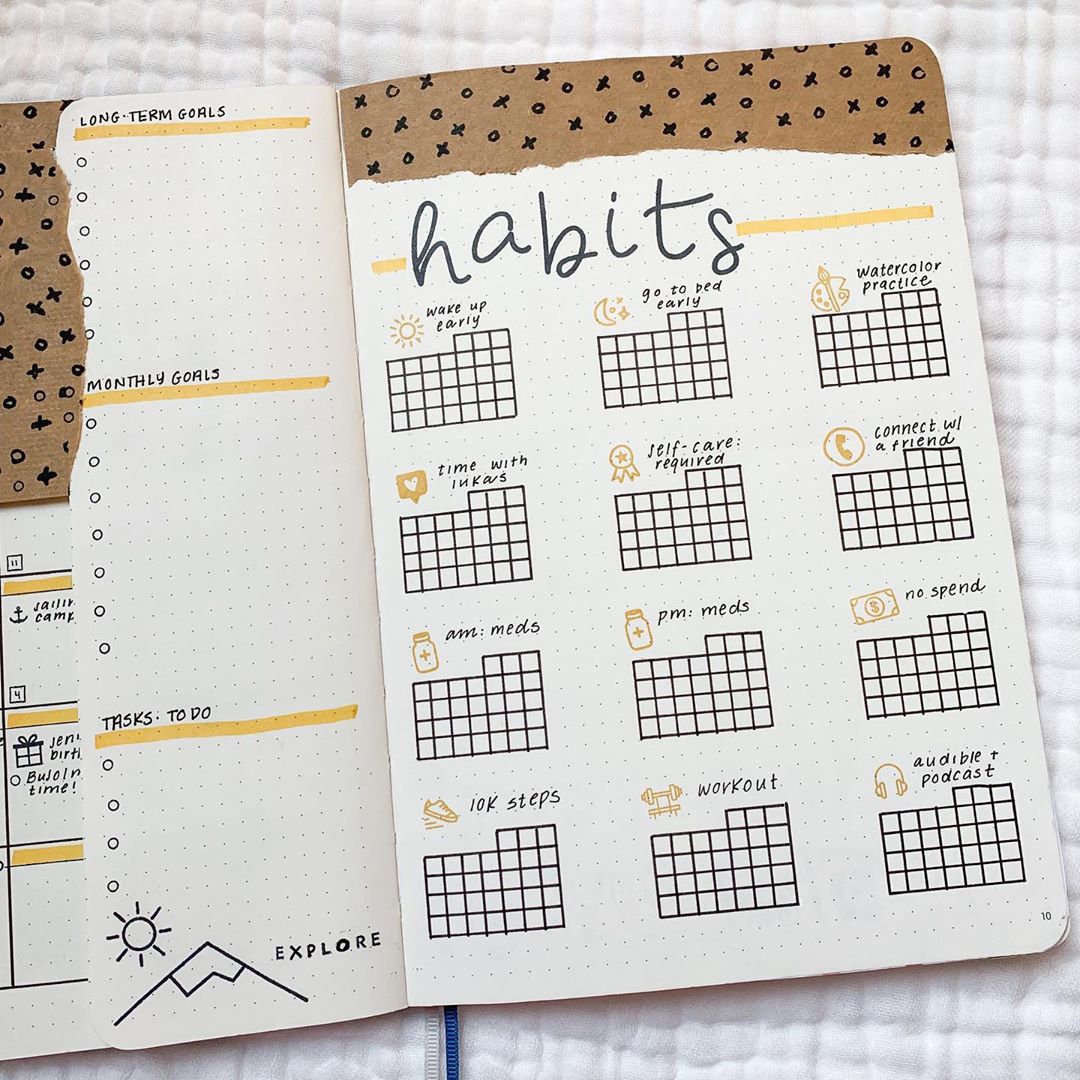 11
camp
4
time!
LONG-TERM GOALS
MONTHLY GOALS
TASKS: TO DO
EXPLORE
habits
wake up
early
go to bed
early
watercolor
practice
time with
lukas
self-care:
required
connect w/
a friend
am: meds
pm: meds
no spend
10K steps
workout
audible +
podcast
10